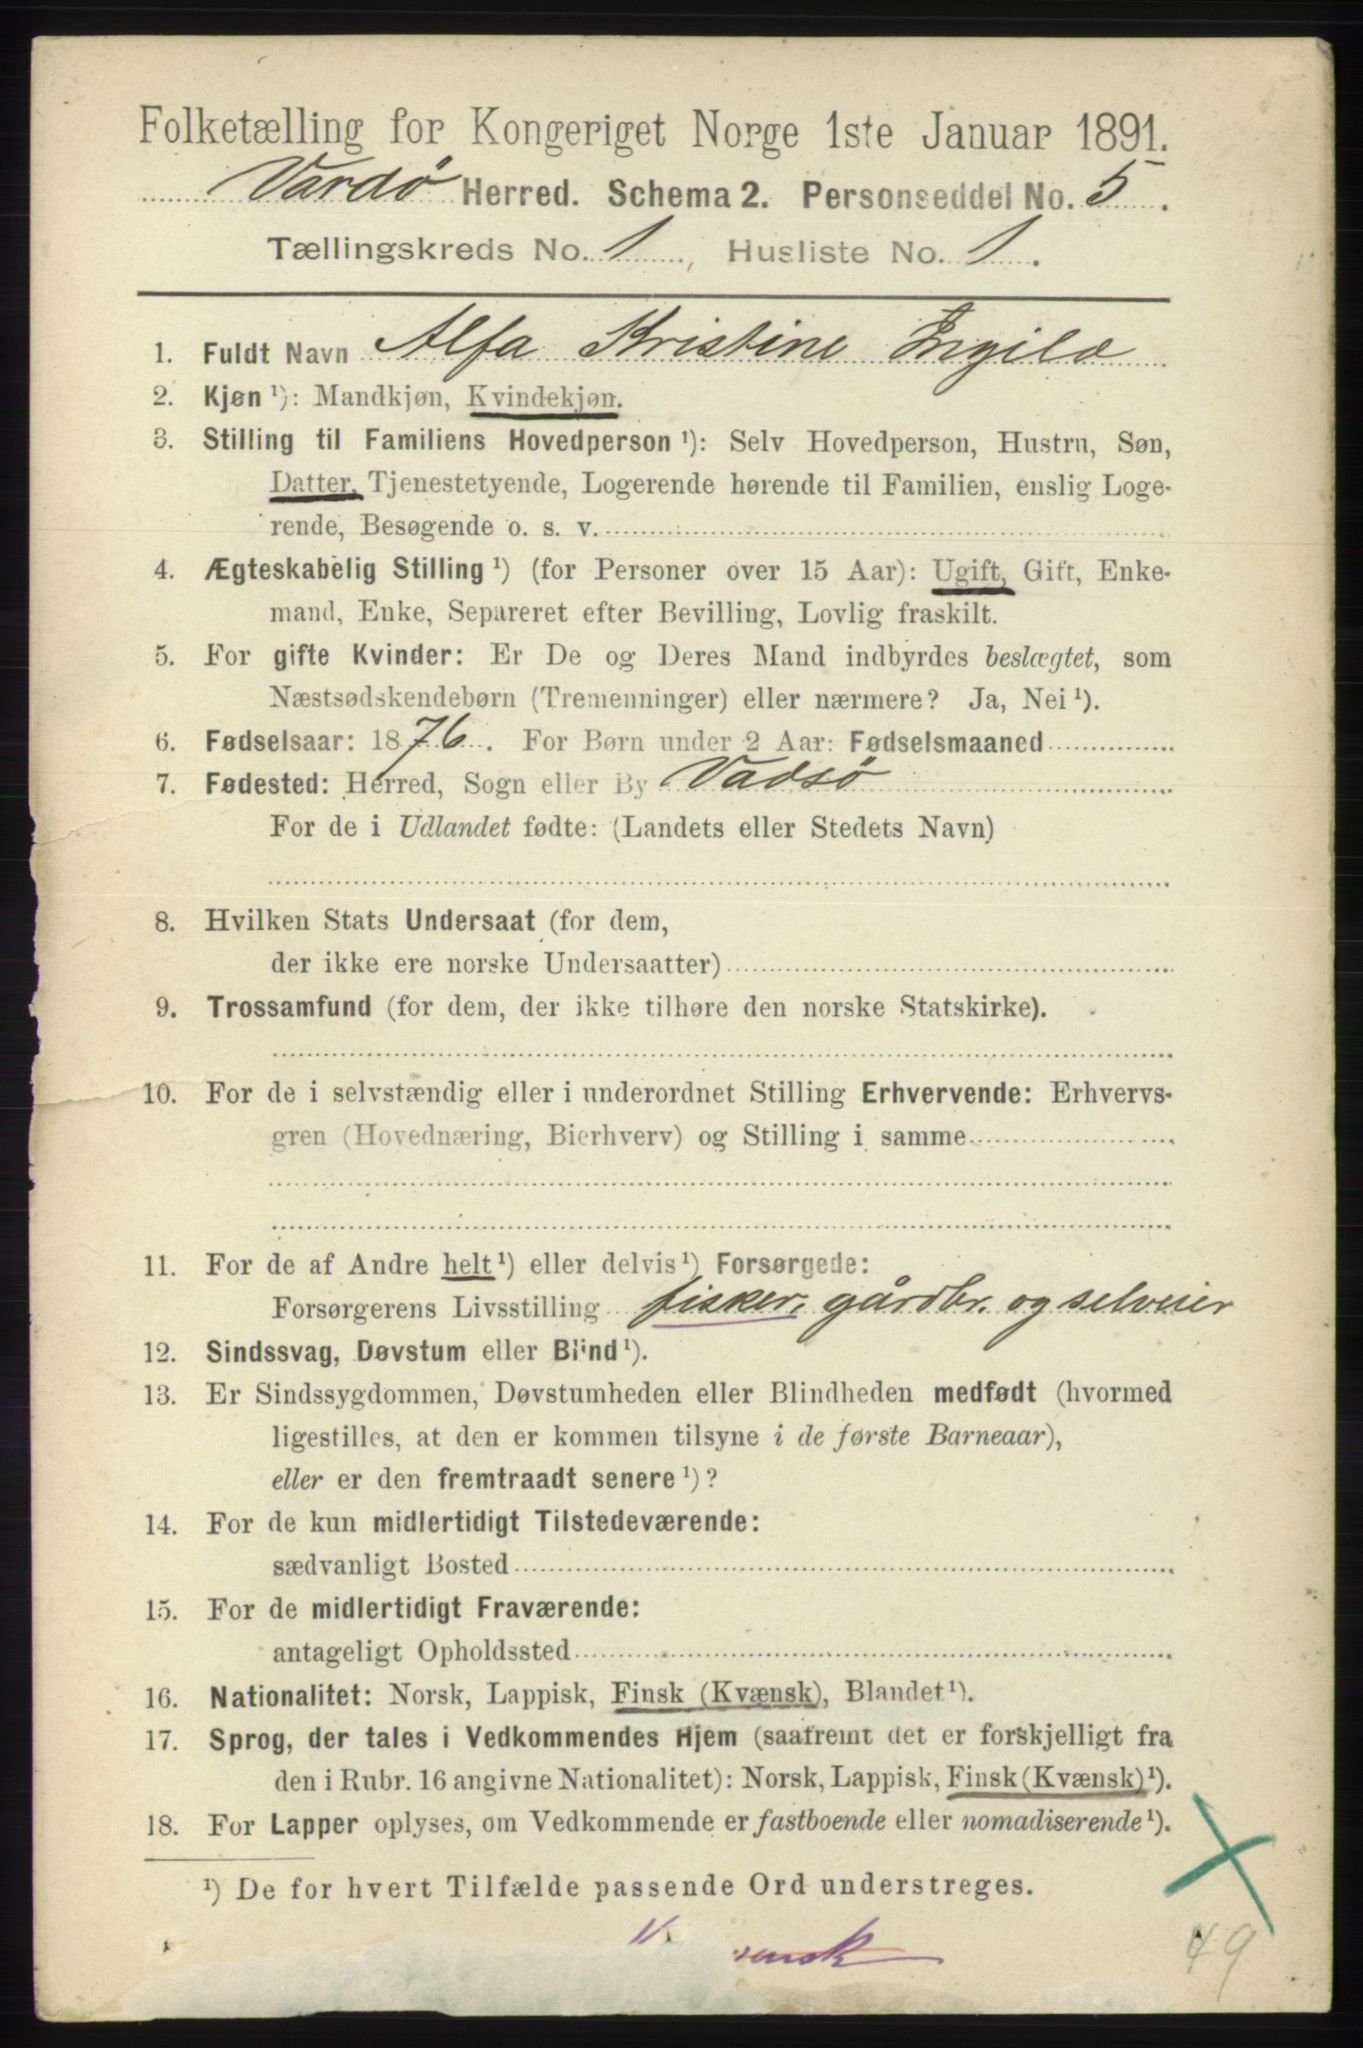 Folketælling for Kongeriget Norge 1ste Januar 1891.
Vardø Herred. Schema 2. Personseddel No. 5.
Tællingskreds No. 1, Husliste No. 1.
1. Fuldt Navn Alfa Kristine
2. Kjøn ¹): Mandkjøn, Kvindekjøn.
3. Stilling til Familiens Hovedperson ¹): Selv Hovedperson, Hustru, Søn,
Datter, Tjenestetyende, Logerende hørende til Familien, enslig Loge-
rende, Besøgende o. s. v.
4. Ægteskabelig Stilling ¹) (for Personer over 15 Aar): Ugift, Gift, Enke-
mand, Enke, Separeret efter Bevilling, Lovlig fraskilt.
5. For gifte Kvinder: Er De og Deres Mand indbyrdes beslægtet, som
Næstsødskendebørn (Tremenninger) eller nærmere? Ja, Nei ¹).
6. Fødselsaar: 1876. For Børn under 2 Aar: Fødselsmaaned
7. Fødested: Herred, Sogn eller By Vadsø
For de i Udlandet fødte: (Landets eller Stedets Navn)
8. Hvilken Stats Undersaat (for dem,
der ikke ere norske Undersaatter)
9. Trossamfund (for dem, der ikke tilhøre den norske Statskirke).
10. For de i selvstændig eller i underordnet Stilling Erhvervende: Erhvervs-
gren (Hovednæring, Bierhverv) og Stilling i samme
11. For de af Andre helt ¹) eller delvis ¹) Forsørgede:
Forsørgerens Livsstilling fisker, gårdbr. og selveier
12. Sindssvag, Døvstum eller Blind ¹).
13. Er Sindssygdommen, Døvstumheden eller Blindheden medfødt (hvormed
ligestilles, at den er kommen tilsyne i de første Barneaar),
eller er den fremtraadt senere ¹)?
14. For de kun midlertidigt Tilstedeværende:
sædvanligt Bosted
15. For de midlertidigt Fraværende:
antageligt Opholdssted
16. Nationalitet: Norsk, Lappisk, Finsk (Kvænsk), Blandet ¹).
17. Sprog, der tales i Vedkommendes Hjem (saafremt det er forskjelligt fra
den i Rubr. 16 angivne Nationalitet): Norsk, Lappisk, Finsk (Kvænsk) ¹).
18. For Lapper oplyses, om Vedkommende er fastboende eller nomadiserende ¹).
¹) De for hvert Tilfælde passende Ord understreges.
49